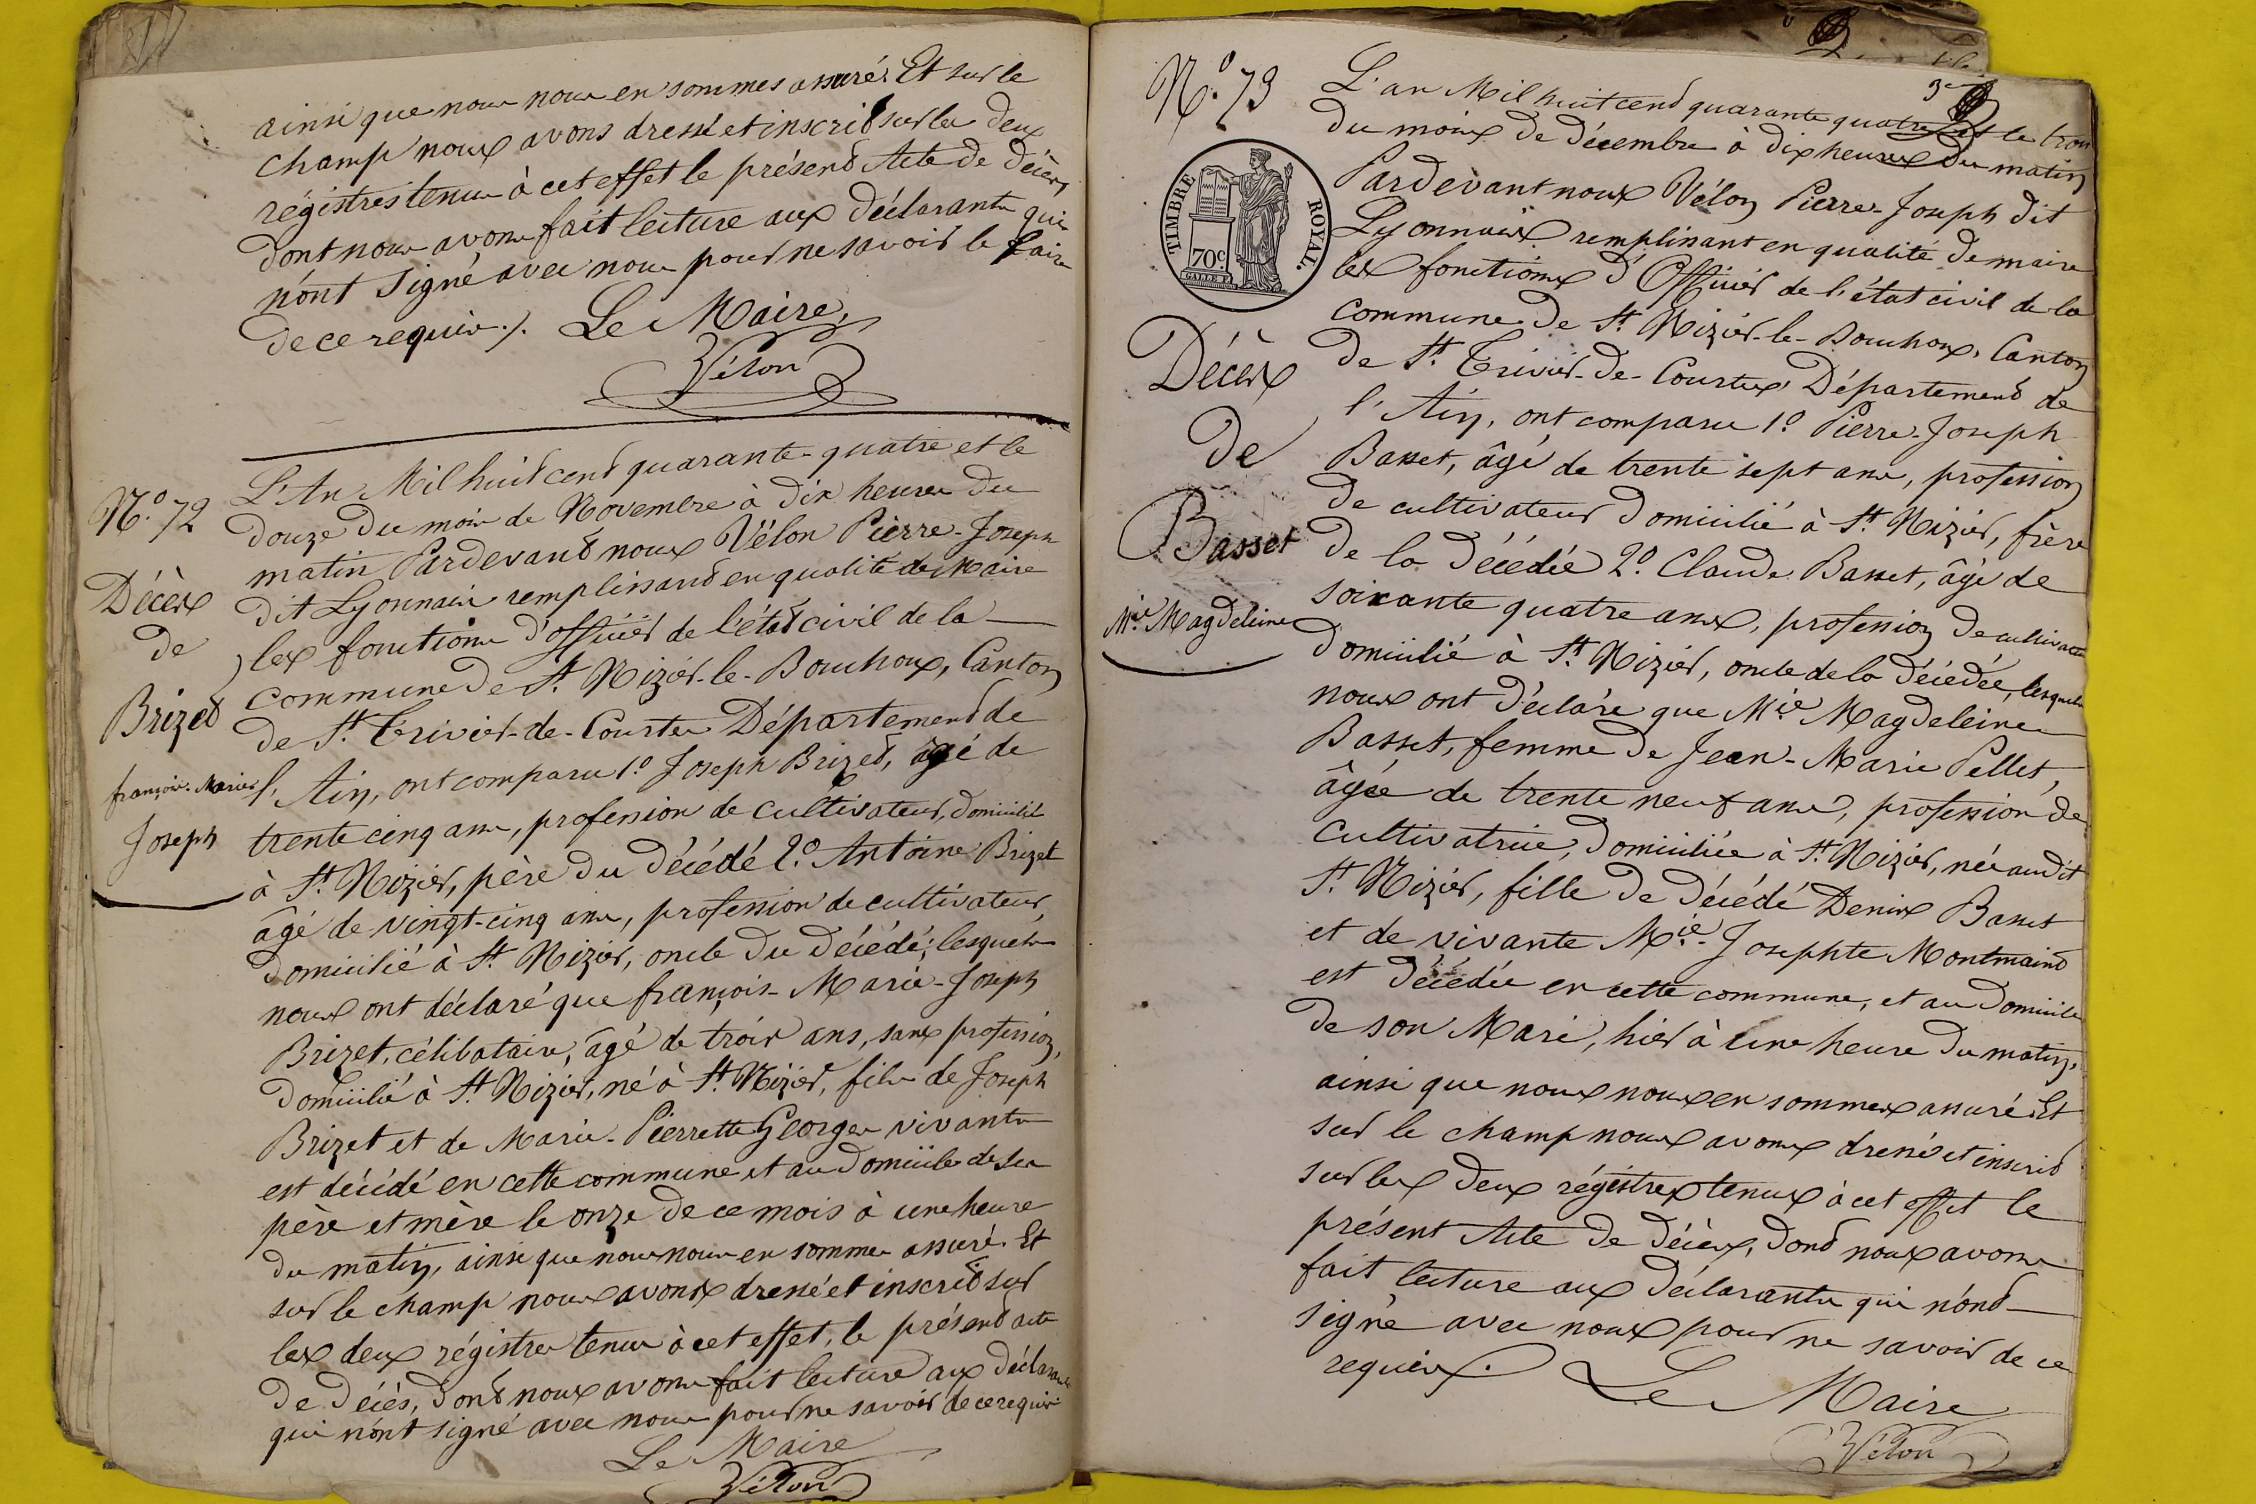 ainsi que nous nous en sommes assuré. Et sur le
champ nous avons dressé et inscrit sur les deux
régistres tenus à cet effet le présent Acte de décès
dont nous avons fait lecture aux déclarants qui
n'ont signé avec nous pour ne savoir le faire
de ce requis ./. Le Maire,
Vélon
N.o 72
Décès
de
Brizet
françois-Marie
Joseph
L'An Mil huit cent quarante-quatre et le
douze du mois de Novembre à dix heures du
matin Pardevant nous Vélon Pierre-Joseph
dit Lyonnais remplissant en qualité de Maire
les fonctions d'officier de l'état civil de la
commune de St. Nizier-le-Bouchoux, Canton
de St. Trivier-de-Courtes Département de
l'Ain, ont comparu 1.o Joseph Brizet, âgé de
trente cinq ans, profession de cultivateur, domicilié
à St. Nizier, père du décédé 2.o Antoine Brizet
âgé de vingt-cinq ans, profession de cultivateur,
domicilié à St. Nizier, oncle du décédé; lesquels
nous ont déclaré que françois-Marie-Joseph
Brizet, célibataire, âgé de trois ans, sans profession,
domicilié à St. Nizier, né à St. Nizier, fils de Joseph
Brizet et de Marie-Pierrette Georges vivants
est décédé en cette commune et au domicile de ses
père et mère le onze de ce mois à une heure
du matin, ainsi que nous nous en sommes assuré. Et
sur le champ nous avons dressé et inscrit sur
les deux régistres tenus à cet effet, le présent acte
de décès, dont nous avons fait lecture aux déclarants
qui n'ont signé avec nous pour ne savoir de ce requis
Le Maire
Vélon
N.o 73
TIMBRE ROYAL.
70c
Décès
de
Basset
Mie. Magdeleine
L'an Mil huit cent quarante quatre et le trois
du mois de décembre à dix heures du matin
Pardevant nous Vélon Pierre-Joseph dit
Lyonnais remplissant en qualité de maire
les fonctions d'Officier de l'état civil de la
commune de St. Nizier-le-Bouchoux, Canton
de St. Trivier-de-Courtes Département de
l'Ain, ont comparu 1.o Pierre-Joseph
Basset, âgé de trente sept ans, profession
de cultivateur domicilié à St. Nizier, frère
de la décédée 2.o Claude Basset, âgé de
soixante quatre ans, profession de cultivateur
domicilié à St. Nizier, oncle de la décédée, lesquels
nous ont déclaré que Mie. Magdeleine
Basset, femme de Jean-Marie Pellet,
âgée de trente neuf ans, profession de
cultivatrice, domiciliée à St. Nizier, née audit
St. Nizier, fille de décédé Denis Basset
et de vivante Mie.-Josephte Montmaind
est décédée en cette commune, et au domicile
de son Mari, hier à une heure du matin,
ainsi que nous nous en sommes assuré. Et
sur le champ nous avons dressé et inscrit
sur les deux régistres tenus à cet effet le
présent Acte de décès, dont nous avons
fait lecture aux déclarants qui n'ont
signé avec nous pour ne savoir de ce
requis. Le Maire
Vélon